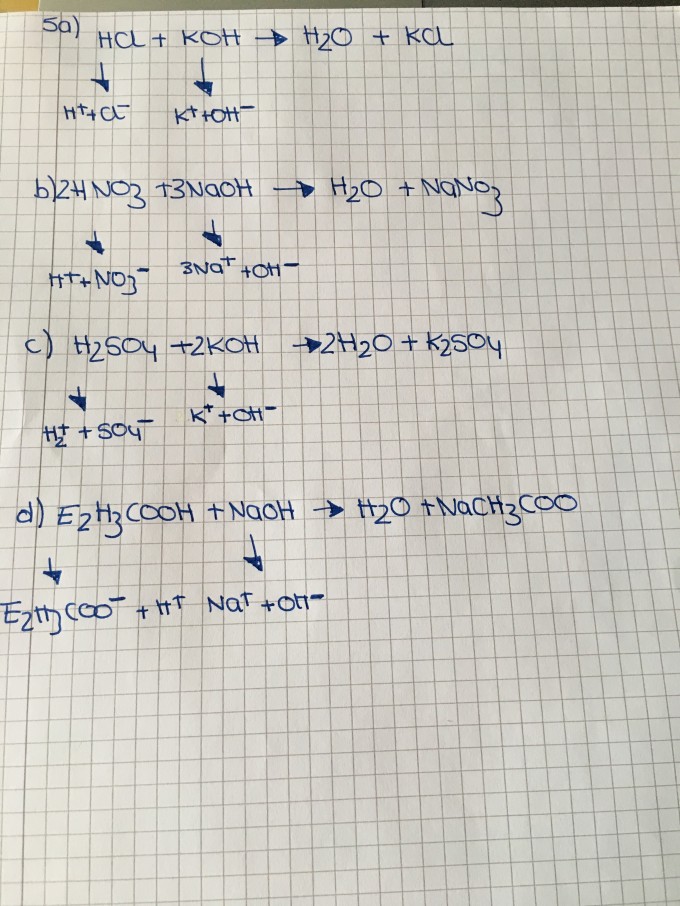 5a) HCl + KOH → H2O + KCl
↓ ↓
H⁺+Cl⁻ K⁺+OH⁻
b) 2HNO3 +3NaOH → H2O + NaNO3
↓ ↓
H⁺+NO3⁻ 3Na⁺+OH⁻
c) H2SO4 +2KOH →2H2O + K2SO4
↓ ↓
H2⁺ + SO4⁻ K⁺+OH⁻
d) E2H3COOH + NaOH → H2O +NaCH3COO
↓ ↓
E2H3COO⁻ + H⁺ Na⁺+OH⁻